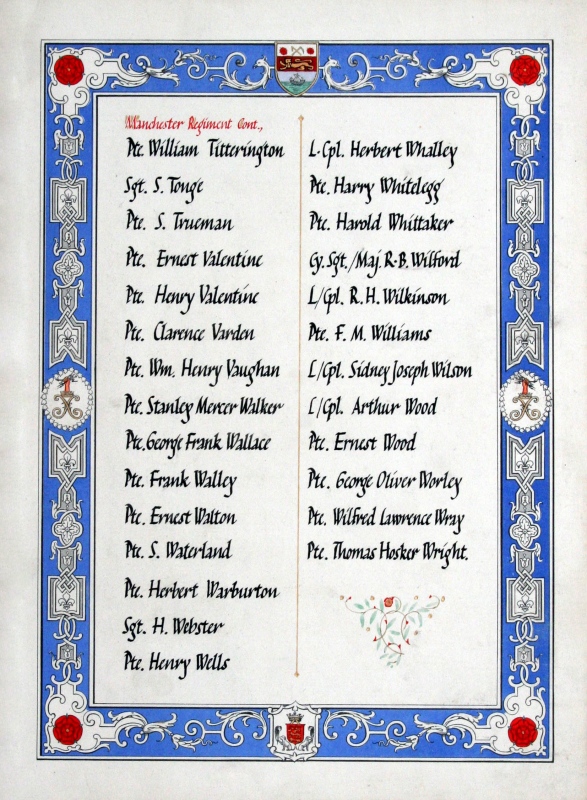 Manchester Regiment Cont.,
Pte. William Titterington
Sgt. S. Tonge
Pte. S. Trueman
Pte. Ernest Valentine
Pte. Henry Valentine
Pte. Clarence Varden
Pte. Wm. Henry Vaughan
Pte. Stanley Mercer Walker
Pte. George Frank Wallace
Pte. Frank Walley
Pte. Ernest Walton
Pte. S. Waterland
Pte. Herbert Warburton
Sgt. H. Webster
Pte. Henry Wells
L-Cpl. Herbert Whalley
Pte. Harry Whitelegg
Pte. Harold Whittaker
Cy. Sgt./Maj. R-B. Wilford
L/Cpl. R. H. Wilkinson
Pte. F. M. Williams
L/Cpl. Sidney Joseph Wilson
L/Cpl. Arthur Wood
Pte. Ernest Wood
Pte. George Oliver Worley
Pte. Wilfred Lawrence Wray
Pte. Thomas Hosker Wright.